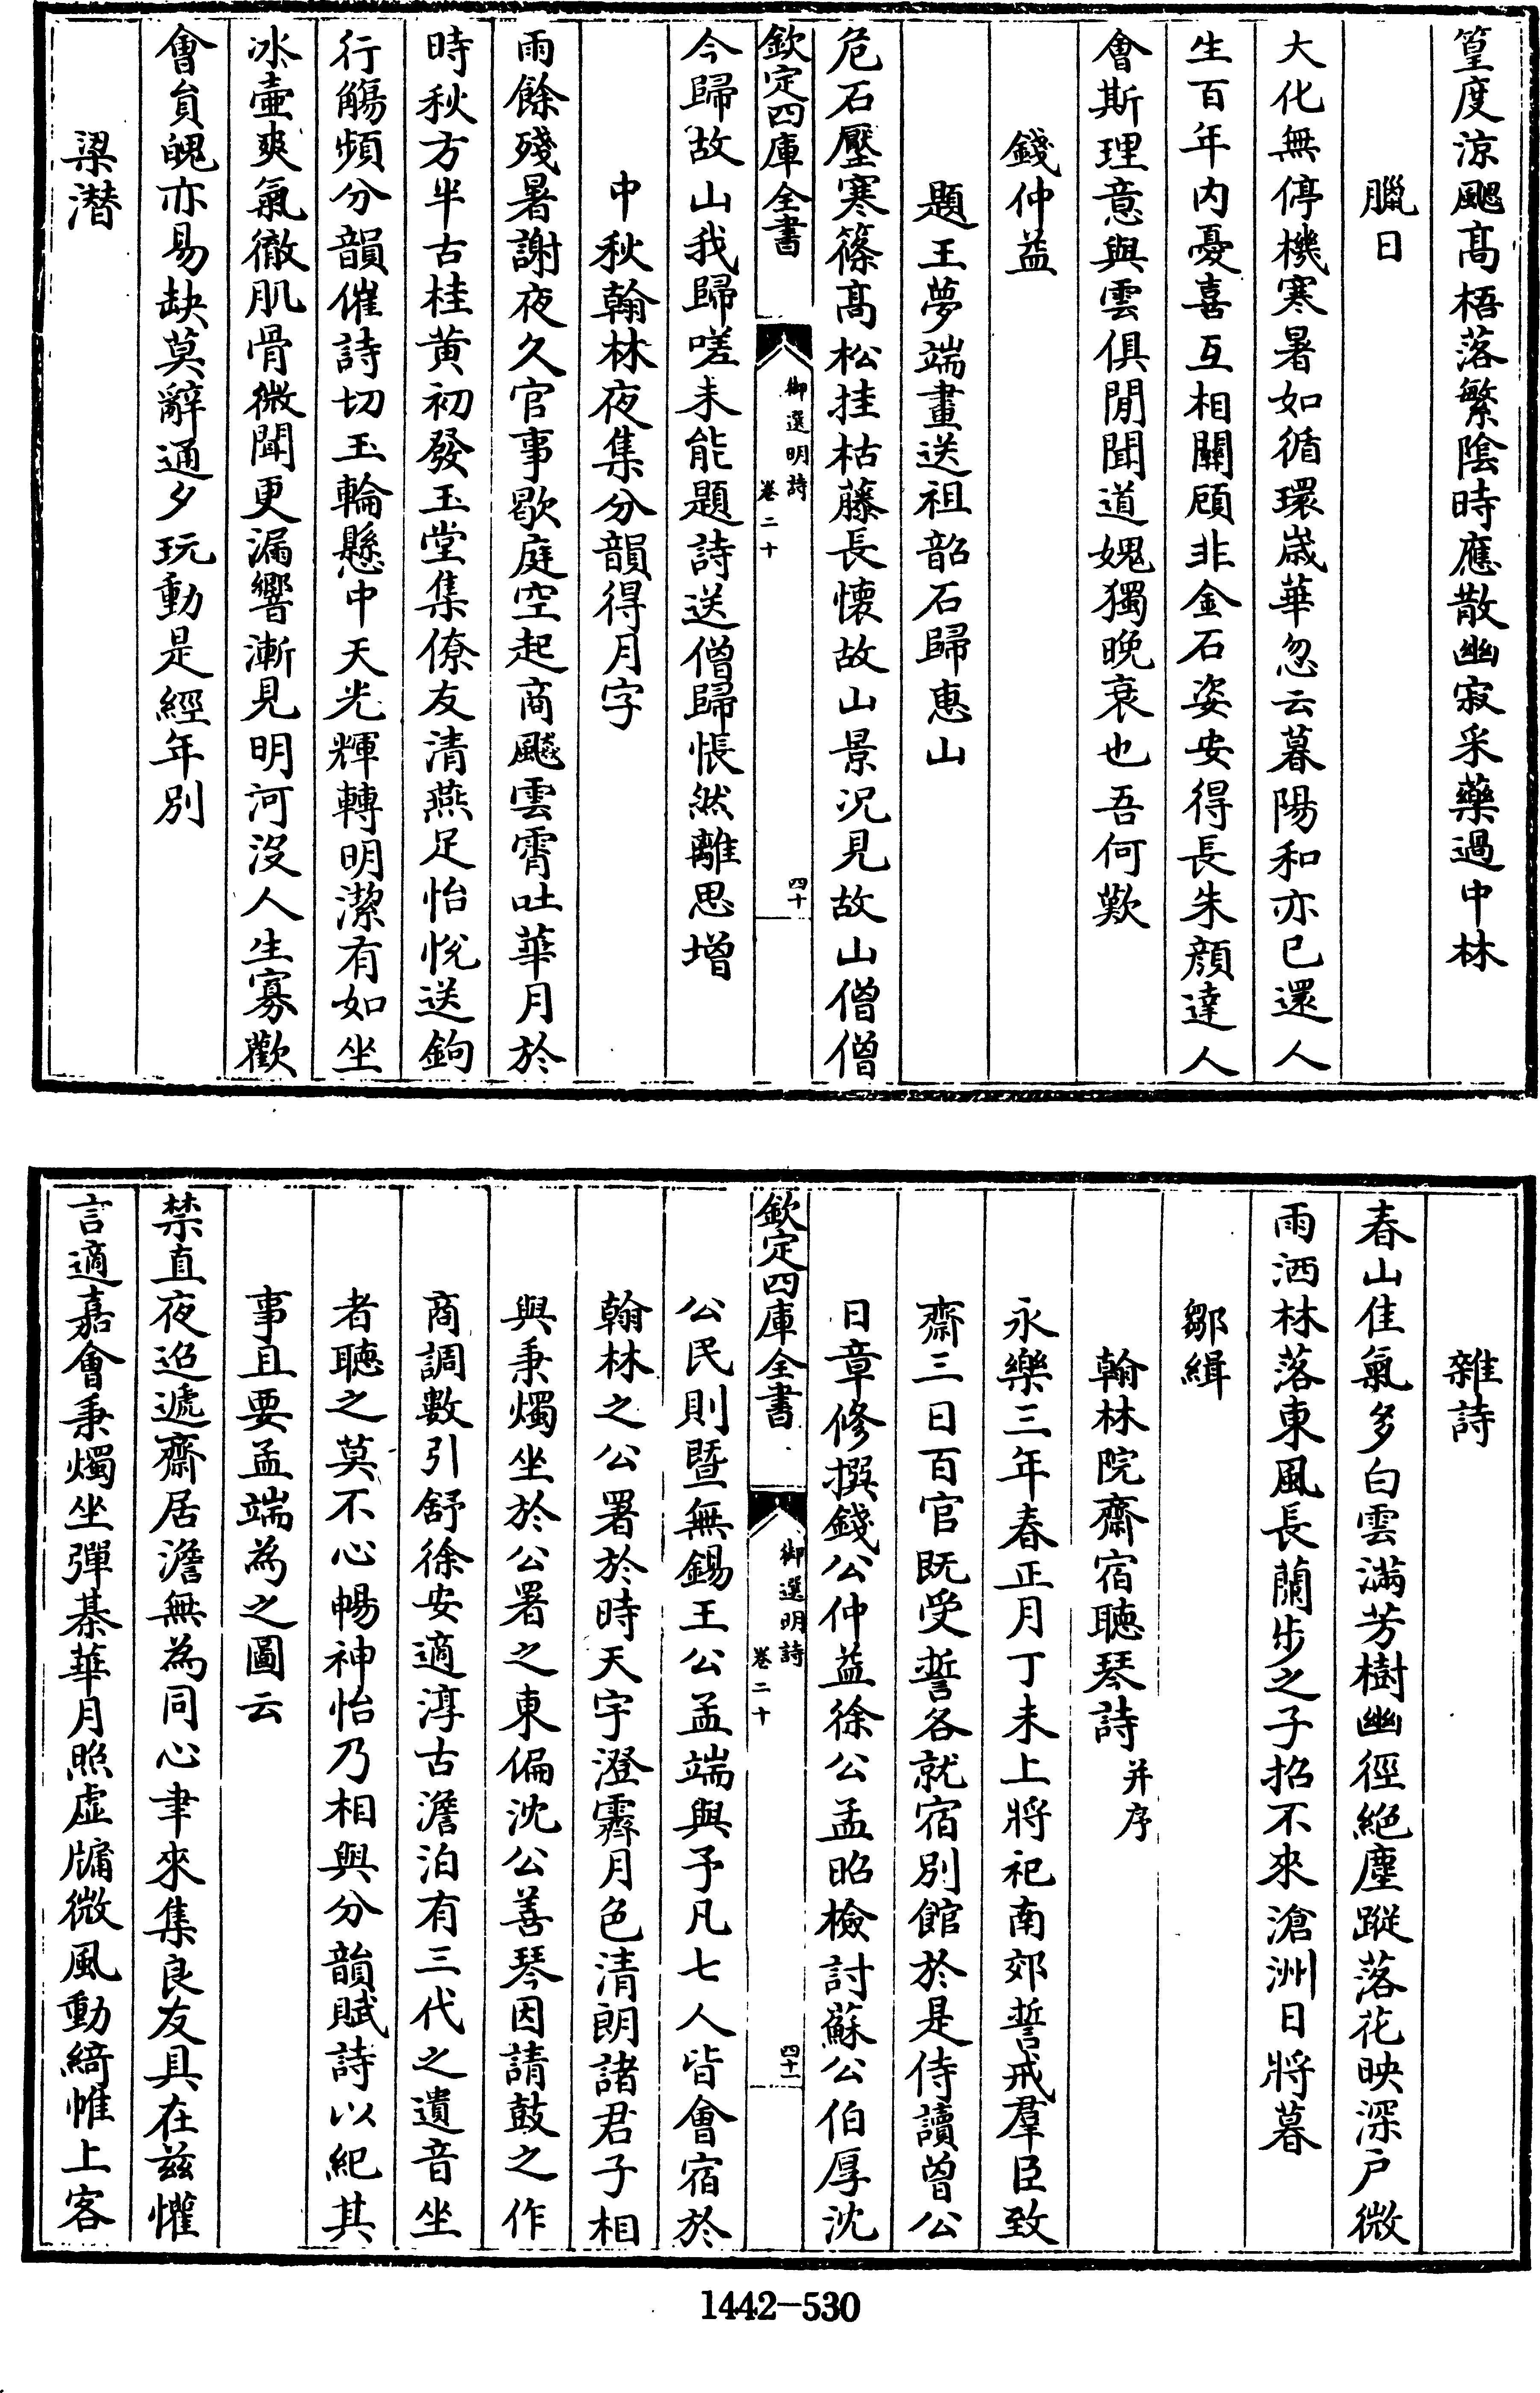 篁度涼颸髙梧落繁陰時應散幽寂采藥過中林
臘日
大化無停機寒暑如循環歳華忽云暮陽和亦已還人
生百年内憂喜互相關顧非金石姿安得長朱顔達人
會斯理意與雲俱閒聞道媿獨晚衰也吾何歎
錢仲益
題王夢端畫送祖韶石歸惠山
危石壓寒篠髙松挂枯藤長懐故山景况見故山僧僧
欽定四庫全書
御選明詩
卷二十
四十
今歸故山我歸嗟未能題詩送僧歸悵然離思增
中秋翰林夜集分韻得月字
雨餘殘暑謝夜久官事歇庭空起商飈雲霄吐華月於
時秋方半古桂黄初發玉堂集僚友清燕足怡悦送鉤
行觴頻分韻催詩切玉輪懸中天光輝轉明潔有如坐
冰壺爽氣徹肌骨微聞更漏響漸見明河沒人生寡歡
會員魄亦易缺莫辭通夕玩動是經年別
梁潛
雜詩
春山佳氣多白雲滿芳樹幽徑絶塵蹤落花映深戸微
雨洒林落東風長蘭步之子招不來滄洲日將暮
鄒緝
翰林院齋宿聽琴詩并序
永樂三年春正月丁未上將祀南郊誓戒羣臣致
齋三日百官既受誓各就宿別館於是侍讀曽公
日章修撰錢公仲益徐公孟昭檢討蘇公伯厚沈
欽定四庫全書
御選明詩
卷二十
四十一
公民則暨無錫王公孟端與予凡七人皆會宿於
翰林之公署於時天宇澄霽月色清朗諸君子相
與秉燭坐於公署之東偏沈公善琴因請鼓之作
商調數引舒徐安適淳古澹泊有三代之遺音坐
者聽之莫不心暢神怡乃相與分韻賦詩以紀其
事且要孟端為之圖云
禁直夜迢遞齋居澹無為同心聿來集良友具在兹懽
言適嘉會秉燭坐彈棊華月照虚牖微風動綺帷上客
1442-530